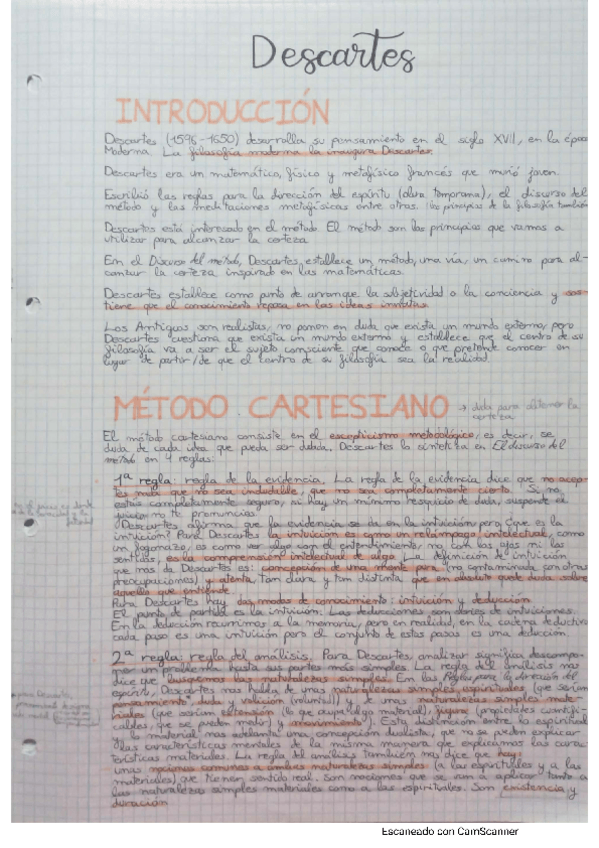 Descartes
INTRODUCCIÓN
Descartes (1596-1650) desarrolla su pensamiento en el siglo XVII, en la época
Moderna. La filosofía moderna la inaugura Descartes.
Descartes era un matemático, físico y metafísico francés que murió joven.
Escribió las reglas para la dirección del espíritu (obra temprana), el discurso del
método y las meditaciones metafísicas entre otras. (los principios de la filosofía también
Descartes está interesado en el método. El método son los principios que vamos a
utilizar para alcanzar la certeza.
En el Discurso del método, Descartes establece un método, una vía, un camino para al-
canzar la certeza inspirado en las matemáticas.
Descartes establece como punto de arranque la subjetividad o la conciencia y sos-
tiene que el conocimiento reposa en las ideas innatas.
Los Antiguos son realistas, no ponen en duda que exista un mundo externo, pero
Descartes cuestiona que exista un mundo externo y establece que el centro de su
filosofía va a ser el sujeto consciente que conoce o que pretende conocer en
lugar de partir/de que el centro de su filosofía sea la realidad.
MÉTODO CARTESIANO → duda para obtener la
certeza
El método cartesiano consiste en el escepticismo metodológico, es decir, se
duda de cada idea que pueda ser dudada. Descartes la sintetiza en El discurso del
método en 4 reglas:
1ª regla: regla de la evidencia. La regla de la evidencia dice que no acep-
tes nada que no sea indudable, que no sea completamente cierto. Si no
estás completamente seguro, si hay un mínimo resquicio de duda, suspende el
juicio, no te pronuncies.
Descartes afirma que la evidencia se da en la intuición, pero ¿qué es la
intuición? Para Descartes la intuición es como un relámpago intelectual, como
un fogonazo, es como ver algo con el entendimiento, no con los ojos ni los
sentidos, es la comprensión intelectual de algo. La definición de intuición
que nos da Descartes es: concepción de una mente pura (no contaminada por otras
preocupaciones) y atenta, tan clara y tan distinta que en absoluto quede duda sobre
aquello que entiende.
Para Descartes hay dos modos de conocimiento: intuición y deducción.
El punto de partida es la intuición. Las deducciones son series de intuiciones.
En la deducción recurrimos a la memoria, pero en realidad, en la cadena deductiva
cada paso es una intuición pero el conjunto de estos pasos es una deducción.
2ª regla: regla del análisis. Para Descartes, analizar significa descompo-
ner un problema hasta sus partes más simples. La regla del análisis nos
dice que busquemos las naturalezas simples. En las Reglas para la dirección del
espíritu, Descartes nos habla de unas naturalezas simples espirituales (que serían
pensamiento, duda y volición (voluntad)) y de unas naturalezas simples mate-
riales (que serían extensión (lo que ocupa algo material), figura (propiedades cuantifi-
cables, que se pueden medir) y movimiento). Esta distinción entre lo espiritual
y lo material nos adelanta una concepción dualista, que no se pueden explicar
las características mentales de la misma manera que explicamos las carac-
terísticas materiales. La regla del análisis también nos dice que hay
unas nociones comunes a ambas naturalezas simples (a las espirituales y a las
materiales) que tienen sentido real. Son nociones que se van a aplicar tanto a
las naturalezas simples materiales como a las espirituales. Son existencia y
duración
Escaneado con CamScanner